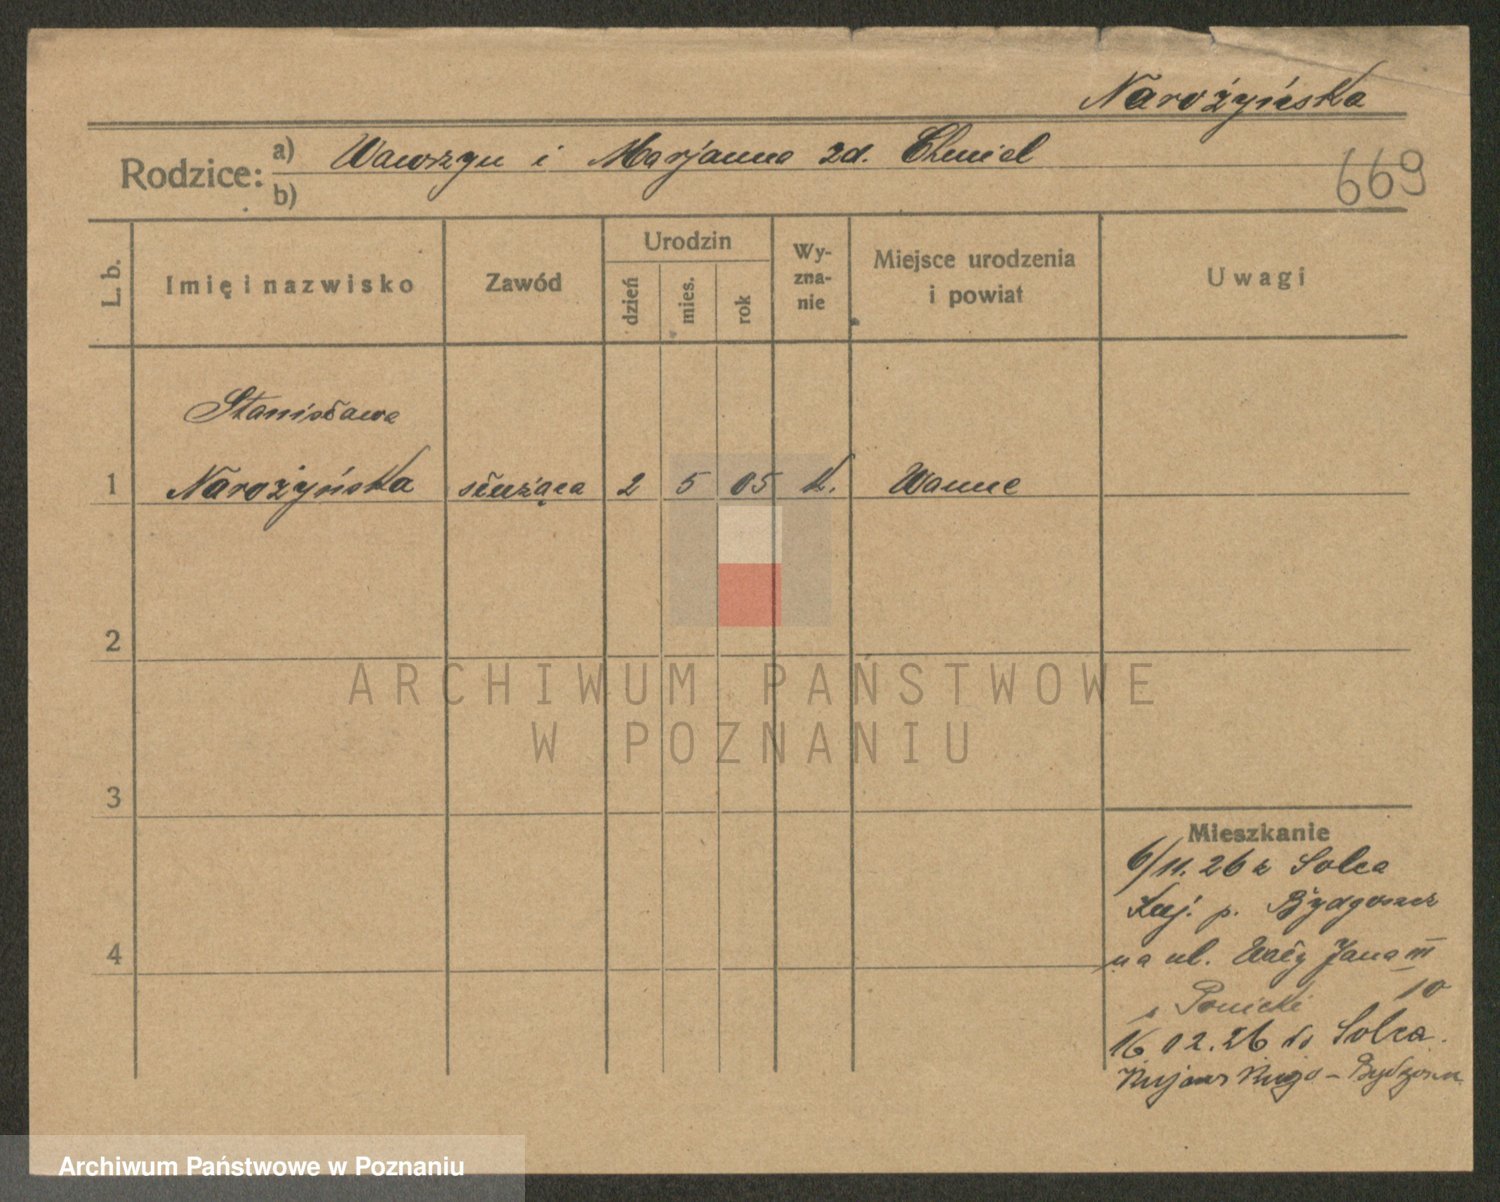 Narożyńska
Rodzice: a) Wawrzyn i Marjanna zd. Chmiel
b)
669
L. b.
Imię i nazwisko
Zawód
Urodzin
dzień
mies.
rok
Wy-
zna-
nie
Miejsce urodzenia
i powiat
Uwagi
Stanisława
1 Narożyńska służąca 2 5 05 k. Wanne
2
ARCHIWUM PAŃSTWOWE
W POZNANIU
3
Mieszkanie
6/11. 26 z Solca
Kuj. p. Bydgoszcz
4
na ul. Wały Jana III
10
Ponicki
16.12.26 do Solca
Kujawskiego - Bydgoszcz
Archiwum Państwowe w Poznaniu